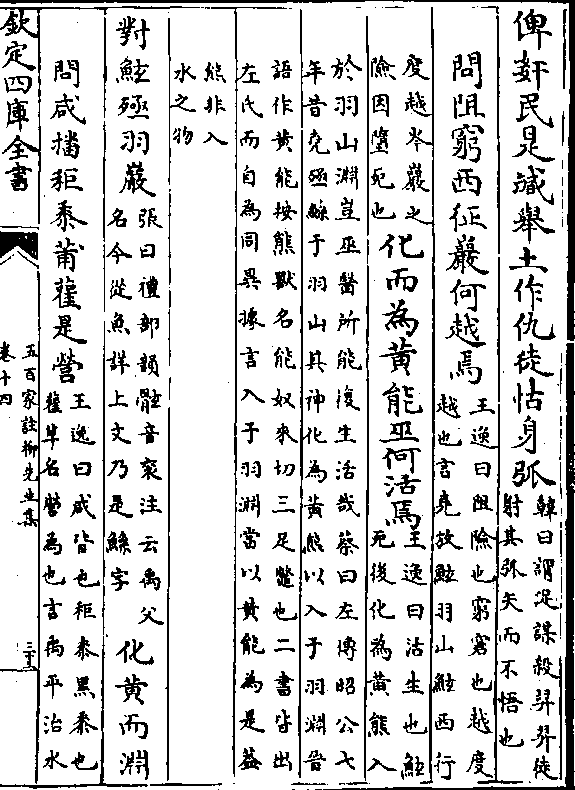 俾奸民是臧舉土作仇徒怙身弧韓曰謂浞謀殺羿羿徒
射其弧矢而不悟也
問阻窮西征巖何越焉王逸曰阻險也窮窘也越度
越也言堯放鮌羽山鮌西行
度越岑巖之
險因墮死也化而為黄能巫何活焉王逸曰活生也鮌
死後化為黄熊入
於羽山淵豈巫醫所能復生活哉蔡曰左傳昭公七
年昔堯殛鯀于羽山其神化為黄熊以入于羽淵晉
語作黄能按熊獸名能奴來切三足鼈也二書皆出
左氏而自為同異據言入于羽淵當以黄能為是蓋
熊非入
水之物
對鮌殛羽巖張曰禮部韻䰷音衮注云禹父
名今從魚詳上文乃是鯀字化黄而淵
問咸播秬黍莆雚是營王逸曰咸皆也秬黍黑黍也
雚草名營為也言禹平治水
欽定四庫全書
五百家註栁先生集
卷十四